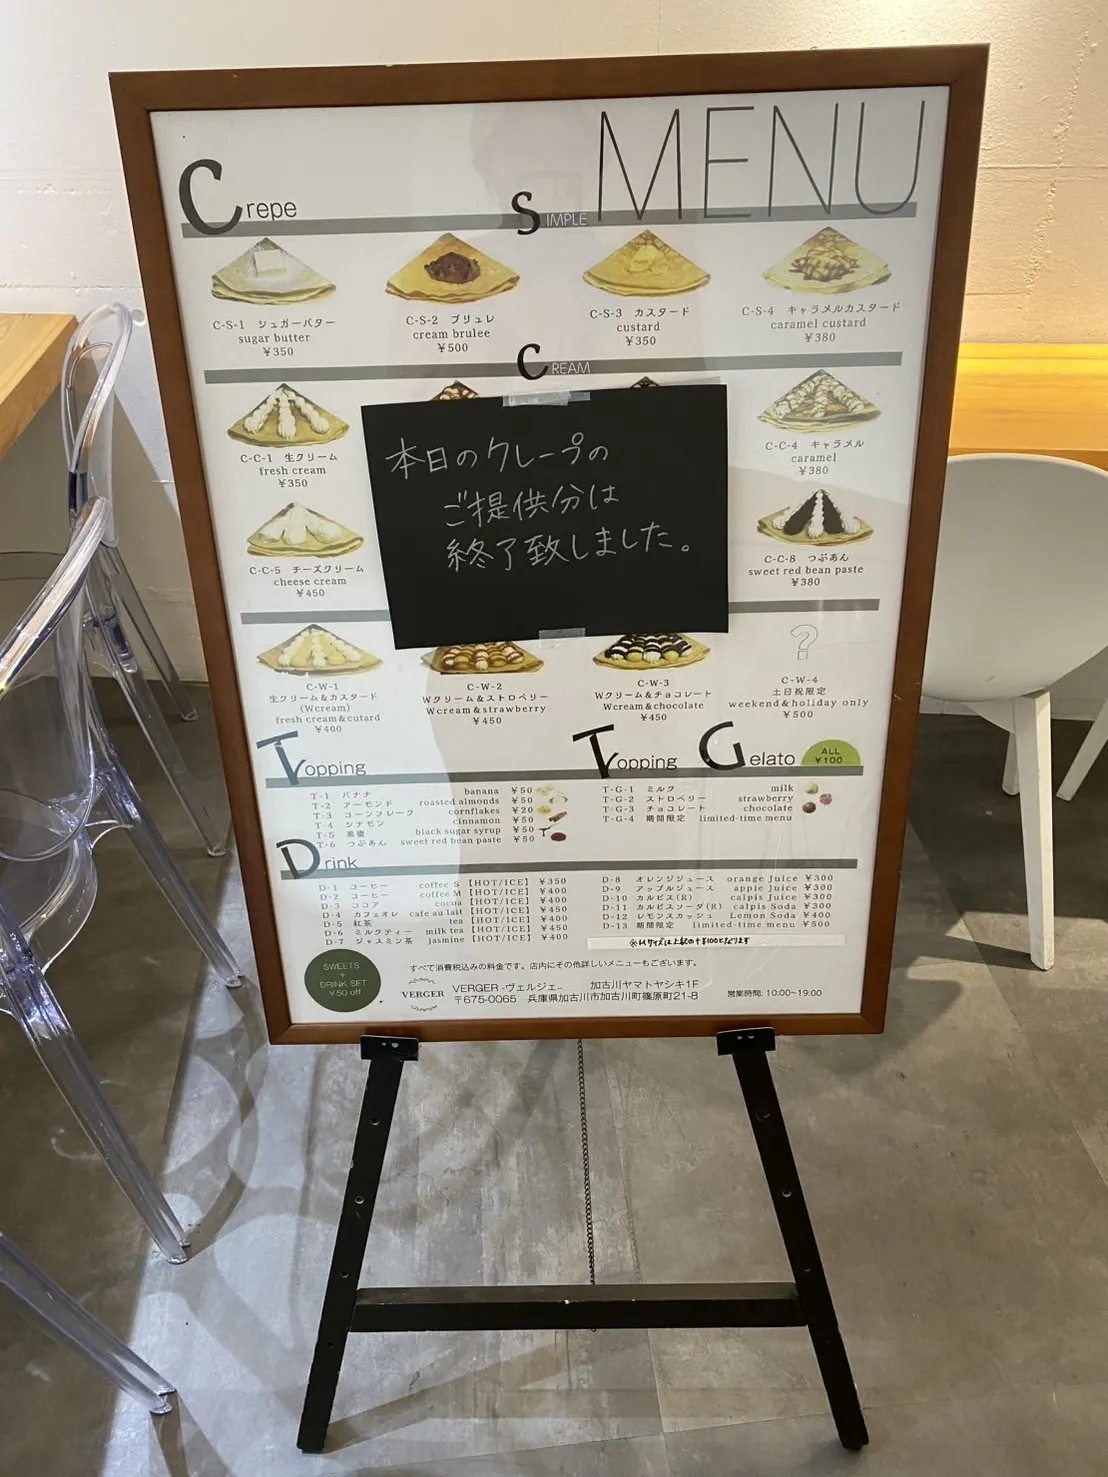 MENU
Crepe
SIMPLE
C-S-1 シュガーバター
sugar butter
¥350
C-S-2 ブリュレ
cream brulee
¥500
C-S-3 カスタード
custard
¥350
C-S-4 キャラメルカスタード
caramel custard
¥380
CREAM
C-C-1 生クリーム
fresh cream
¥350
C-C-4 キャラメル
caramel
¥380
本日のクレープの
ご提供分は
終了致しました。
C-C-5 チーズクリーム
cheese cream
¥450
C-C-8 つぶあん
sweet red bean paste
¥380
C-W-1
生クリーム&カスタード
(Wcream)
fresh cream&cutard
¥400
C-W-2
Wクリーム&ストロベリー
Wcream&strawberry
¥450
C-W-3
Wクリーム&チョコレート
Wcream&chocolate
¥450
?
C-W-4
土日祝限定
weekend&holiday only
¥500
Topping
T-1 バナナ banana ¥50
T-2 アーモンド roasted almonds ¥50
T-3 コーンフレーク cornflakes ¥20
T-4 シナモン cinnamon ¥50
T-5 黒蜜 black sugar syrup ¥50
T-6 つぶあん sweet red bean paste ¥50
Topping Gelato
ALL
¥100
T-G-1 ミルク milk
T-G-2 ストロベリー strawberry
T-G-3 チョコレート chocolate
T-G-4 期間限定 limited-time menu
Drink
D-1 コーヒー coffee S【HOT/ICE】¥350
D-2 コーヒー coffee M【HOT/ICE】¥400
D-3 ココア cocoa【HOT/ICE】¥400
D-4 カフェオレ cafe au lait【HOT/ICE】¥450
D-5 紅茶 tea【HOT/ICE】¥400
D-6 ミルクティー milk tea【HOT/ICE】¥450
D-7 ジャスミン茶 jasmine【HOT/ICE】¥400
D-8 オレンジジュース orange Juice ¥300
D-9 アップルジュース apple Juice ¥300
D-10 カルピス(R) calpis Juice ¥300
D-11 カルピスソーダ(R) calpis Soda ¥300
D-12 レモンスカッシュ Lemon Soda ¥400
D-13 期間限定 limited-time menu ¥500
※Mサイズは上記の+¥100となります
SWEETS
+
DRINK SET
¥50 off
すべて消費税込みの料金です。店内にその他詳しいメニューもございます。
VERGER
VERGER -ヴェルジェ- 加古川ヤマトヤシキ1F
〒675-0065 兵庫県加古川市加古川町篠原町21-8
営業時間: 10:00~19:00